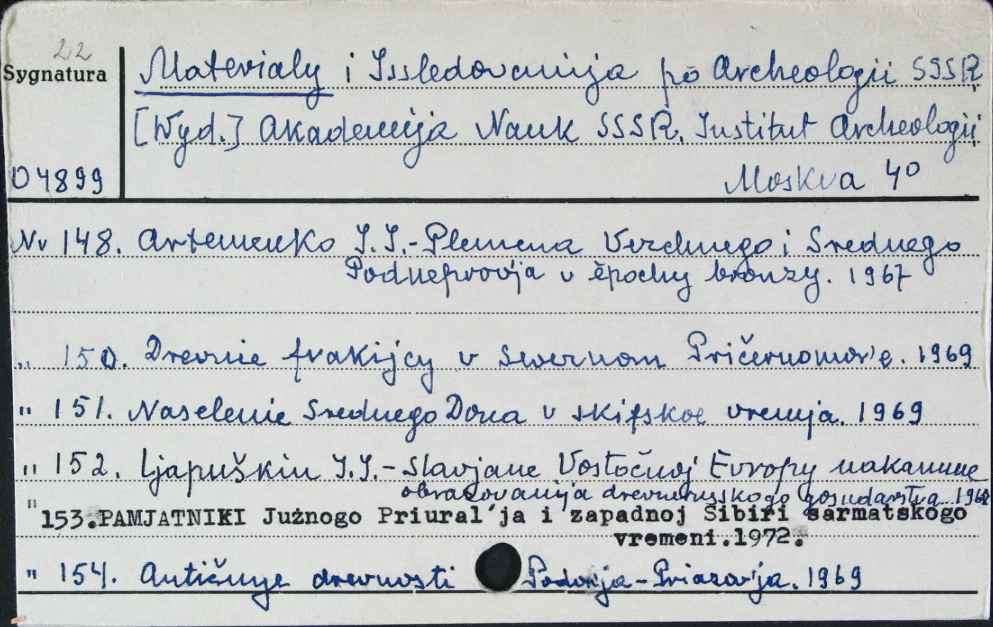 22
Sygnatura Materialy i Issledovanija po Archeologii SSSR
[Wyd.] Akademija Nauk SSSR. Institut Archeologii
O4899 Moskva 4°
Nr 148. Artemenko I.I.-Plemena Verchnego i Srednego
Podneprov'ja v ėpochy bronzy. 1967
" 150. Drevnie frakijcy v severnom Pričernomor'e. 1969
" 151. Naselenie Srednego Dona v skifskoe vremja. 1969
" 152. Ljapuškin I.I.-Slavjane Vostočnoj Evropy nakanune
obrazovanija drevnerusskogo gosudarstva.
" 153.PAMJATNIKI Južnogo Priural'ja i zapadnoj Sibiri sarmatskogo
vremeni.1972.
" 154. Antičnye drevnosti Podon'ja-Priazov'ja. 1969